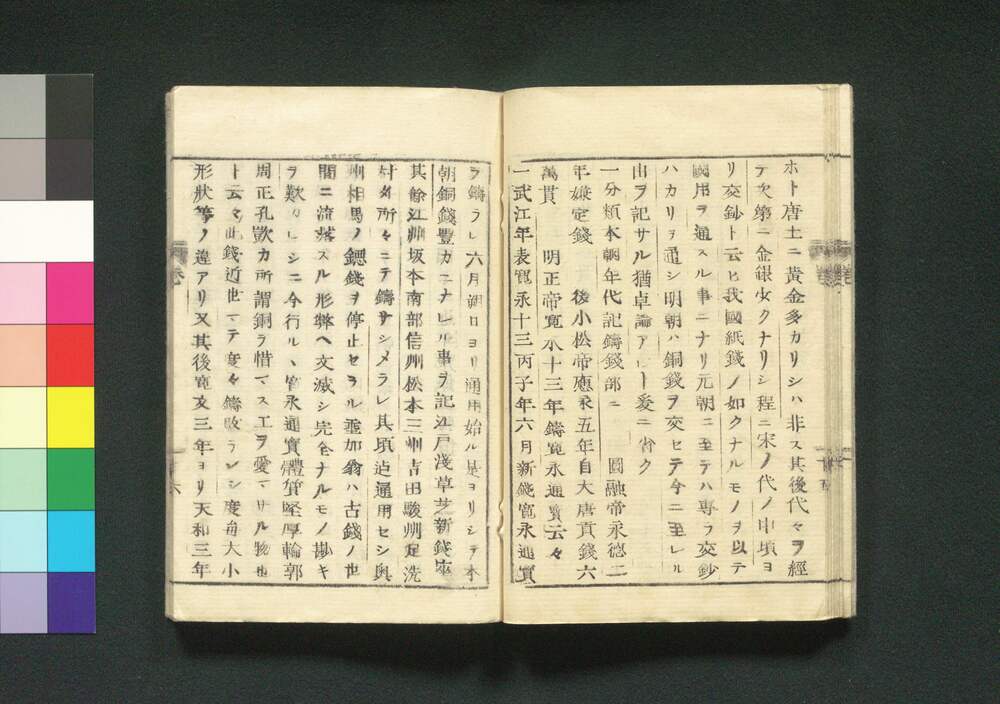 ホト唐土ニ黄金多カリシハ非ス其後代々ヲ經
テ次第ニ金銀少クナリシ程ニ宋ノ代ノ中頃ヨ
リ交鈔ト云ヒ我國紙錢ノ如クナルモノヲ以テ
國用ヲ通スル事ニナリ元朝ニ至テハ専ラ交鈔
ハカリヲ通シ明朝ハ銅錢ヲ交ヒテ今ニ至レル
由ヲ記サル猶卓論アレト爰ニ省ク
一分類本朝年代記鑄錢部ニ 圓融帝永德二
年嫌定錢 後小松帝應永五年自大唐貢錢六
萬貫 明正帝寛永十三年鑄寛永通寳云々
一武江年表寛永十三丙子年六月新錢寛永通寳
ヲ鑄ラレ六月朔日ヨリ通用始ル是ヨリシテ本
朝銅錢豐カニナレル事ヲ記江戸淺草芝新錢座
其餘江州坂本南部信州松本三州吉田駿州足洗
村等所々ニテ鑄サシメラレ其頃迠通用セシ奥
州相馬ノ鍶錢ヲ停止セラル埀加翁ハ古錢ノ世
間ニ流落スル形弊ヘ文滅シ完全ナルモノ尠キ
ヲ歎カレシニ今行ルヽ寛永通寳體質堅厚輪郭
周正孔歟カ所謂銅ヲ惜マス工ヲ愛マサル物也
ト云々此錢近世マテ度々鑄改ランシ度毎大小
形狀等ノ違アリ又其後寛文三年ヨリ天和三年